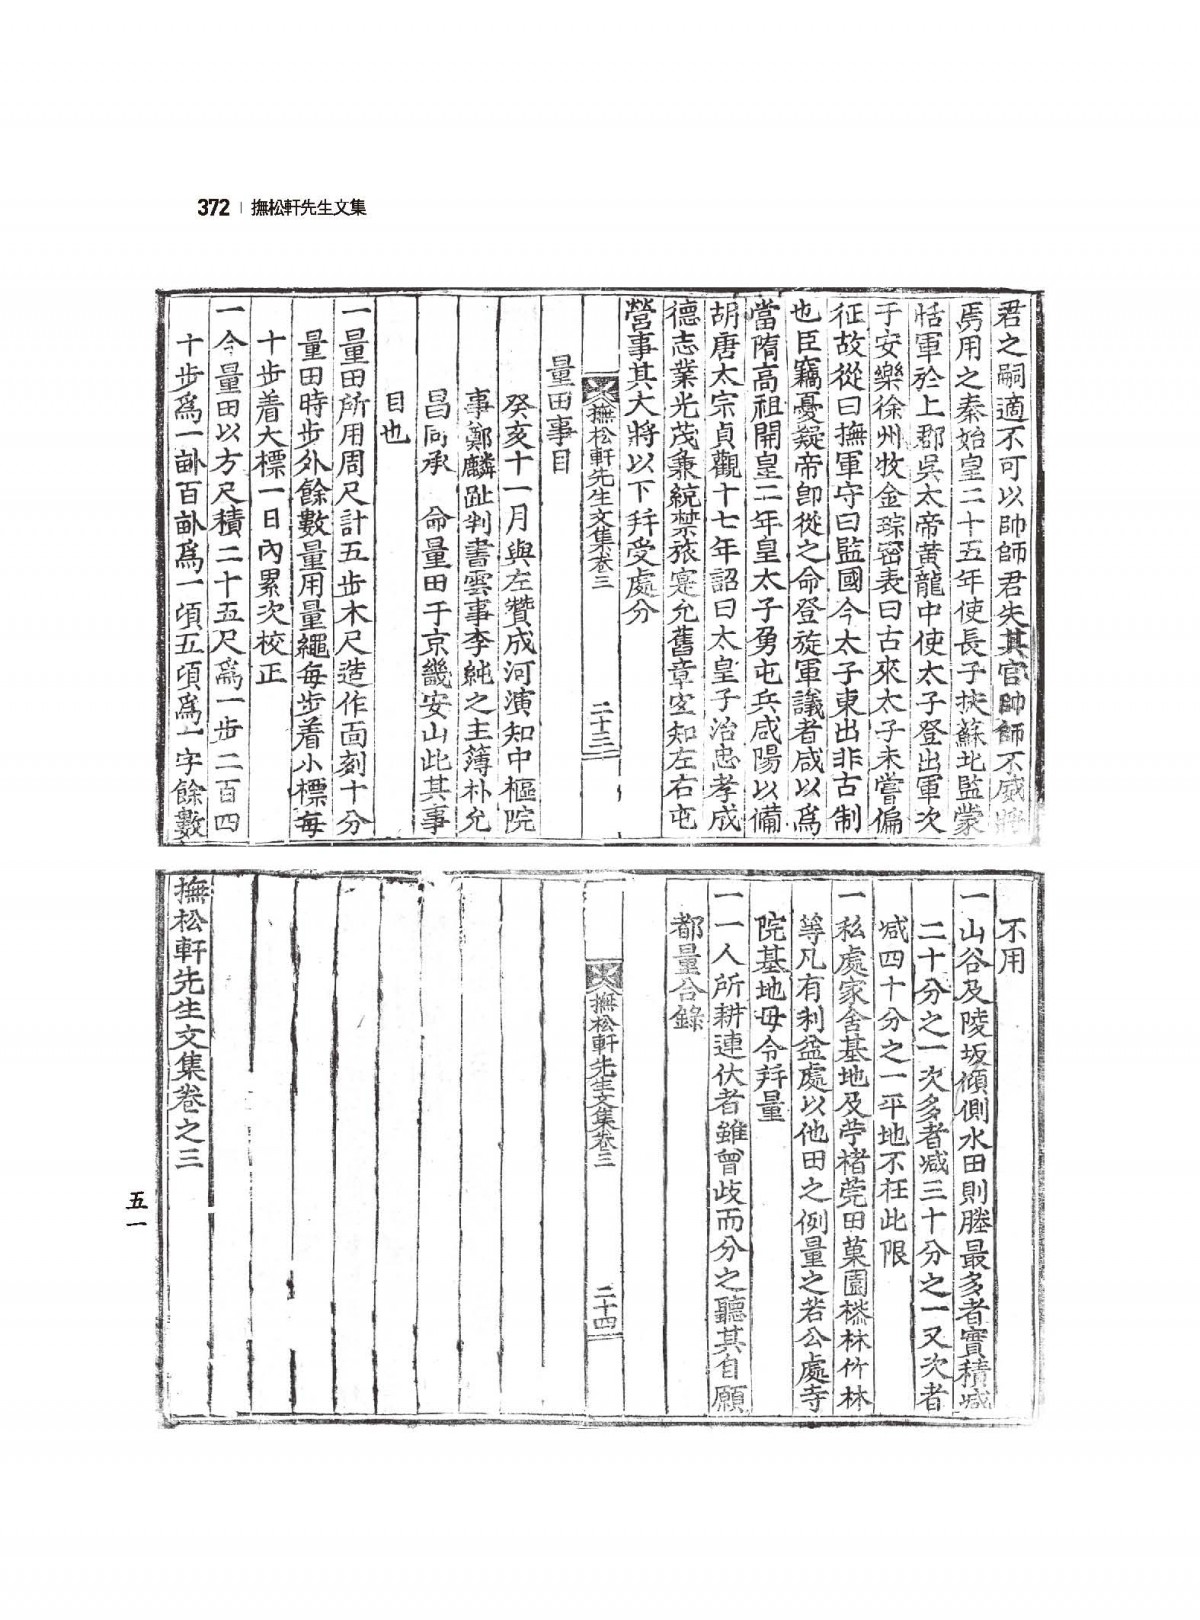 372 | 撫松軒先生文集
君之嗣適不可以帥師君失其官帥師不威將
焉用之秦始皇二十五年使長子扶蘇北監蒙
恬軍於上郡吳太帝黃龍中使太子登出軍次
于安樂徐州牧金琮密表曰古來太子未嘗偏
征故從曰撫軍守曰監國今太子東出非古制
也臣竊憂疑帝卽從之命登旋軍議者咸以爲
當隋高祖開皇二年皇太子勇屯兵咸陽以備
胡唐太宗貞觀十七年詔曰太皇子治忠孝成
德志業光茂兼統禁旅寔允舊章宜知左右屯
營事其大將以下幷受處分
撫松軒先生文集卷三
二十三
量田事目
癸亥十一月與左贊成河演知中樞院
事鄭麟趾判書雲事李純之主簿朴允
昌同承 命量田于京畿安山此其事
目也
一量田所用周尺計五步木尺造作面刻十分
量田時步外餘數量用量繩每步着小標每
十步着大標一日內累次校正
一今量田以方尺積二十五尺爲一步二百四
十步爲一畝百畝爲一頃五頃爲一字餘數
不用
一山谷及陵坂傾側水田則塍最多者實積減
二十分之一次多者減三十分之一又次者
减四十分之一平地不在此限
一私處家舍基地及苧楮莞田菓園桼林竹林
等凡有利益處以他田之例量之若公處寺
院基地毋令幷量
一一人所耕連伏者雖曾歧而分之聽其自願
都量合錄
撫松軒先生文集卷三
二十四
撫松軒先生文集卷之三
五一